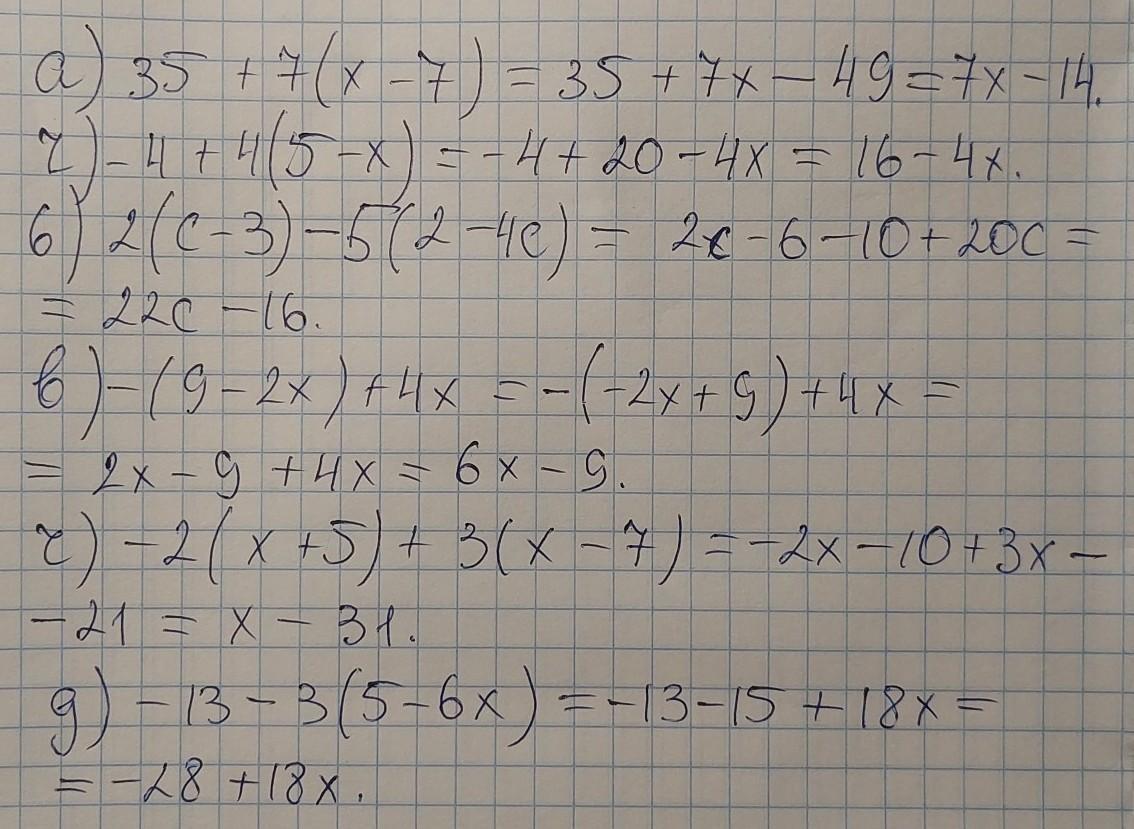 а) 35 + 7(x - 7) = 35 + 7x - 49 = 7x - 14.
г) - 4 + 4(5 - x) = - 4 + 20 - 4x = 16 - 4x.
б) 2(c - 3) - 5(2 - 4c) = 2c - 6 - 10 + 20c =
= 22c - 16.
в) - (9 - 2x) + 4x = - (-2x + 9) + 4x =
= 2x - 9 + 4x = 6x - 9.
г) - 2(x + 5) + 3(x - 7) = - 2x - 10 + 3x -
- 21 = x - 31.
д) - 13 - 3(5 - 6x) = - 13 - 15 + 18x =
= - 28 + 18x.